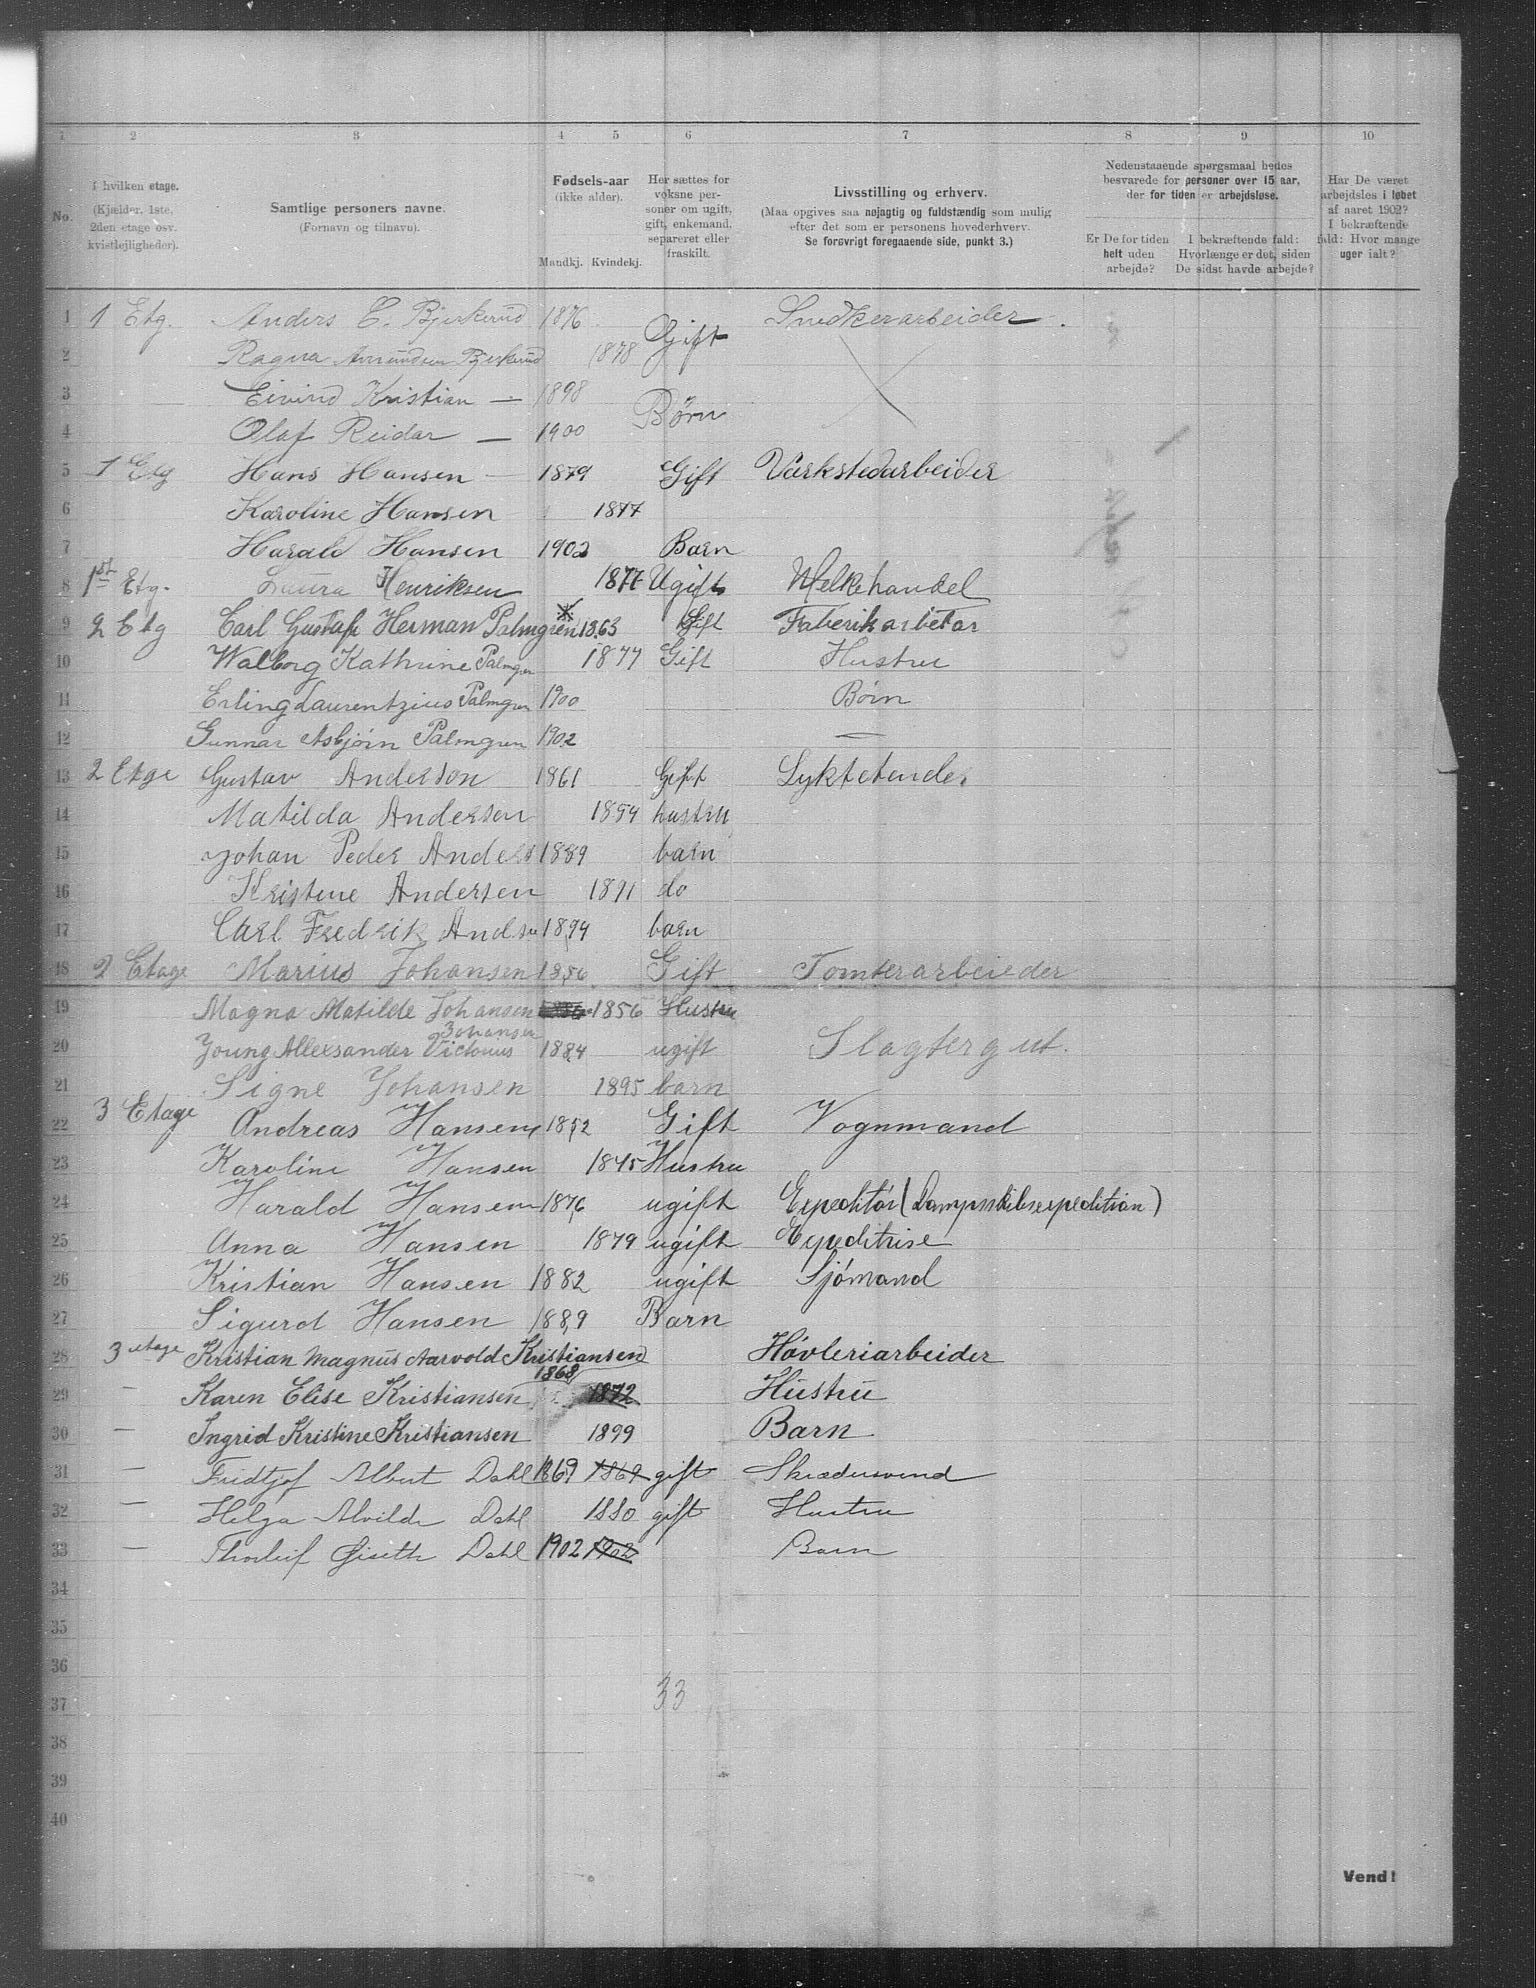 1 2 3 4 5 6 7 8 9 10
No.
I hvilken etage. (Kjælder, 1ste, 2den etage osv. kvistlejligheder).
Samtlige personers navne. (Fornavn og tilnavn).
Fødsels-aar (ikke alder). Mandkj. Kvindekj.
Her sættes for voksne personer om ugift, gift, enkemand, separeret eller fraskilt.
Livsstilling og erhverv.
(Maa opgives saa nøjagtig og fuldstændig som mulig efter det som er personens hovederhverv.
Se forøvrigt foregaaende side, punkt 3.)
Nedenstaaende spørgsmaal bedes besvarede for personer over 15 aar, der for tiden er arbejdsløse.
Er De for tiden helt uden arbejde?
I bekræftende fald: Hvorlænge er det, siden De sidst havde arbejde?
Har De været arbejdsløs i løbet af aaret 1902? I bekræftende fald: Hvor mange uger ialt?
1 1 Etg. Anders E. Bjerkerud 1876 Gift Snedkerarbeider
2 Ragna Amundsen Bjerkerud 1878
3 Eivind Kristian — 1898 Børn
4 Olaf Reidar — 1900
5 1 Etg Hans Hansen — 1879 Gift Værkstedarbeider
6 Karoline Hansen 1877
7 Harald Hansen 1902 Barn
8 1st Etg. Laura Henriksen 1877 Ugift Melkehandel
9 2 Etg Carl Gustaf Herman Palmgren 1863 Gift Faberikarbetar
10 Walborg Kathrine Palmgren 1877 Gift Hustru
11 Erling Laurentzius Palmgren 1900 Børn
12 Gunnar Asbjørn Palmgren 1902 —
13 2 Etge Gustav Anderson 1861 Gift Lyktetender
14 Matilda Andersen 1854 hustru
15 Johan Peder Anders 1889 barn
16 Kristine Andersen 1891 do
17 Carl Fredrik Andsn 1894 barn
18 2 Etage Marius Johansen 1856 Gift Tomterarbeieder
19 Magna Matilde Johansen 1856 Hustru
20 Young Allexsander Victorius Johansen 1884 ugift Slagtergut.
21 Signe Johansen 1895 barn
22 3 Etage Andreas Hansen 1852 Gift Vognmand
23 Karoline Hansen 1845 Hustru
24 Harald Hansen 1876 ugift Expeditør (Dampskibsexpedition)
25 Anna Hansen 1879 ugift Expeditrise
26 Kristian Hansen 1882 ugift Sjømand
27 Sigurd Hansen 1889 Barn
28 3 etage Kristian Magnus Aarvold Kristiansen 1868 Høvleriarbeider
29 — Karen Elise Kristiansen 1872 Hustru
30 — Ingrid Kristine Kristiansen 1899 Barn
31 — Fridtjof Albert Dahl 1869 1869 gift Skrædersvend
32 — Helga Alvilde Dahl 1880 gift Hustru
33 — Thorleif Giseth Dahl 1902 1902 Barn
34
35
36
37 33
38
39
40
Vend!